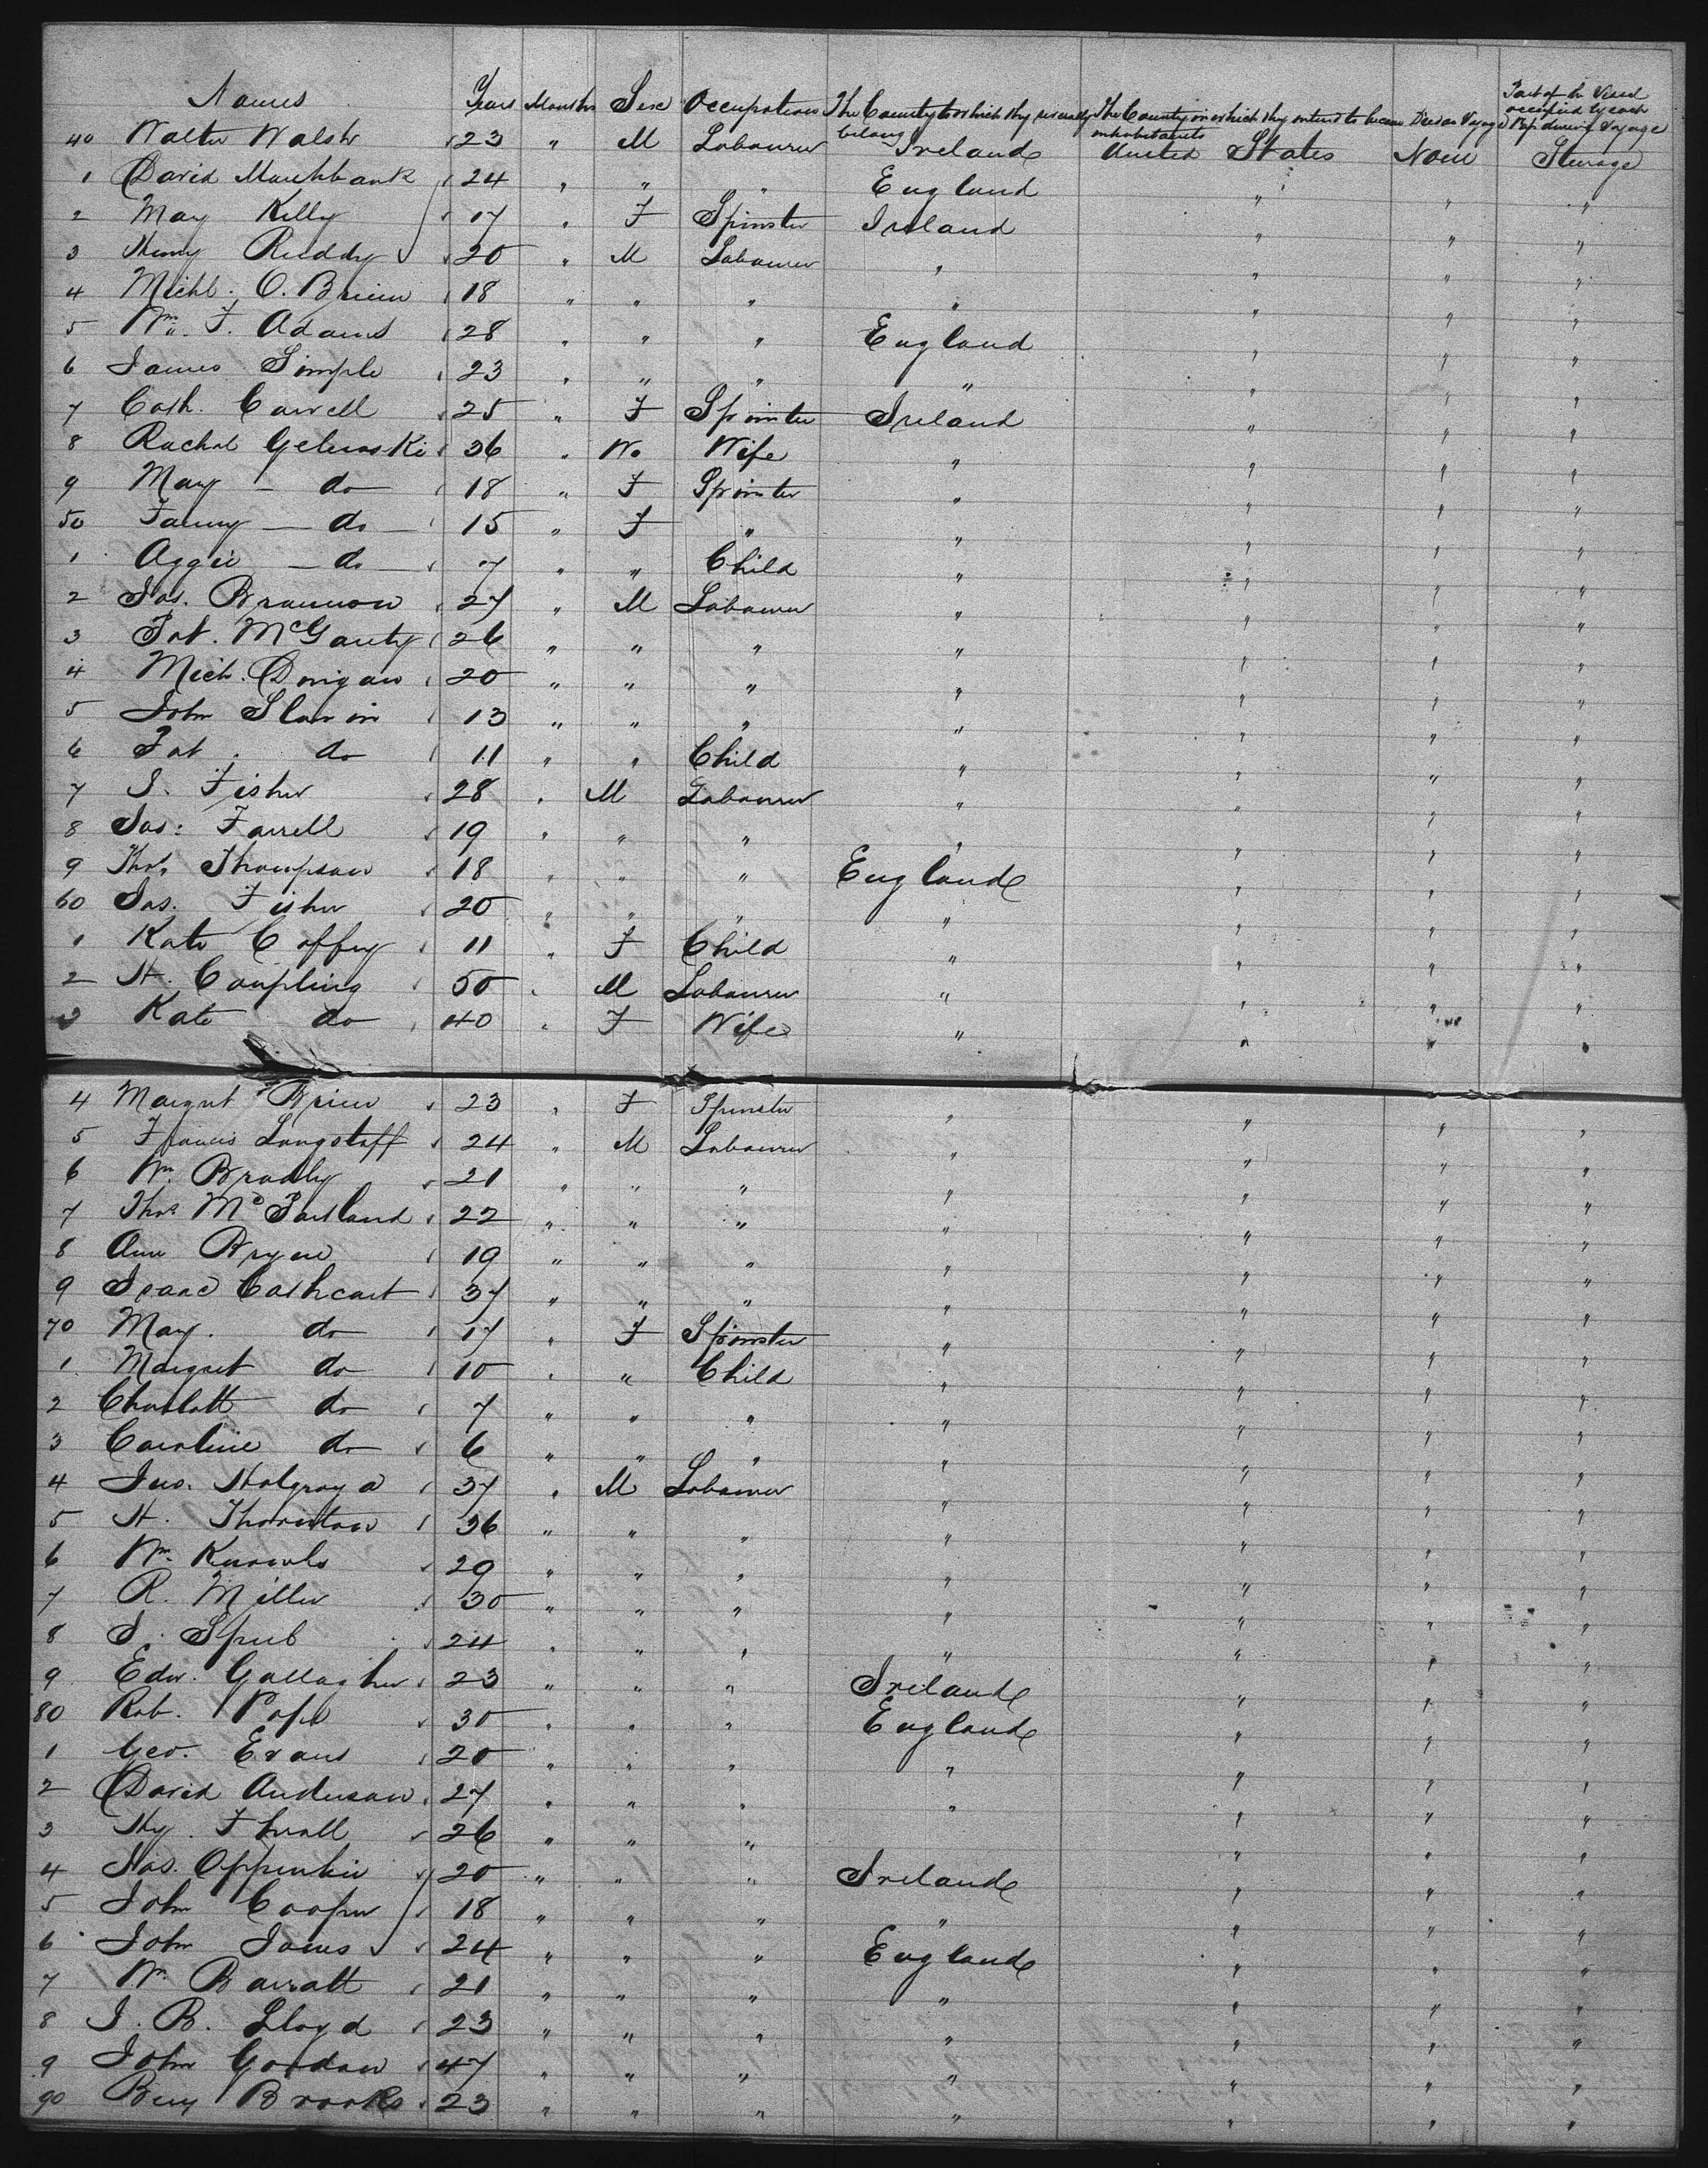 Names Years Months Sex Occupation The Country to which they severally belong The Country in which they intend to become inhabitants Died on Voyage Part of the Vessel occupied by each Psgr during Voyage
40 Walter Walsh 23 " M Labourer Ireland United States None Steerage
1 David Marchbank 24 " " " England " " "
2 Mary Kelly 17 " F Spinster Ireland " " "
3 Henry Ruddy 20 " M Labourer " " " "
4 Michl. O. Brien 18 " " " " " " "
5 Wm. F. Adams 28 " " " England " " "
6 James Simple 23 " " " " " " "
7 Cath. Carrell 25 " F Spinster Ireland " " "
8 Rachel 36 " Wo Wife " " " "
9 Mary - do 18 " F Spinster " " " "
50 Fanny - do - 15 " F " " " " "
1 Aggie - do - 7 " " Child " " " "
2 Jas. Brannon 27 " M Labourer " " " "
3 Pat. McGarty 26 " " " " " " "
4 Mich. Dorigan 20 " " " " " " "
5 John Slavin 13 " " " " " " "
6 Pat. do 11 " " Child " " " "
7 J. Fisher 28 " M Labourer " " " "
8 Jas: Farrell 19 " " " " " " "
9 Thos. Thompson 18 " " " England " " "
60 Jas. Fisher 20 " " " " " " "
1 Kate Coffey 11 " F Child " " " "
2 H. Coupling 50 " M Labourer " " " "
3 Kate do 40 " F Wife " " " "
4 Margret Brien 23 " F Spinster " " " "
5 Francis Longstaff 24 " M Labourer " " " "
6 Wm. Bradly 21 " " " " " " "
7 Thos. McPartland 22 " " " " " " "
8 Ann Bryan 19 " " " " " " "
9 Isaac Cathcart 37 " " " " " " "
70 Mary. do 17 " F Spinster " " " "
1 Margret do 10 " " Child " " " "
2 Charlott do 7 " " " " " " "
3 Caroline do 6 " " " " " " "
4 Jno. Holgroyd 37 " M Labourer " " " "
5 H. Thornton 36 " " " " " " "
6 Wm. Knowls 29 " " " " " " "
7 R. Miller 30 " " " " " " "
8 J. 24 " " " " " " "
9 Edw. Gallagher 23 " " " Ireland " " "
80 Rob. Pope 30 " " " England " " "
1 Geo. Evans 20 " " " " " " "
2 David Anderson 27 " " " " " " "
3 Hy. 26 " " " " " "
4 20 " " " Ireland " " "
5 John Cooper 18 " " " " " " "
6 John Jones 24 " " " England " " "
7 Wm. Barratt 21 " " " " " " "
8 J. B. Lloyd 23 " " " " " " "
9 John Gordon 47 " " " " " " "
90 Benj Brooks 23 " " " " " " "